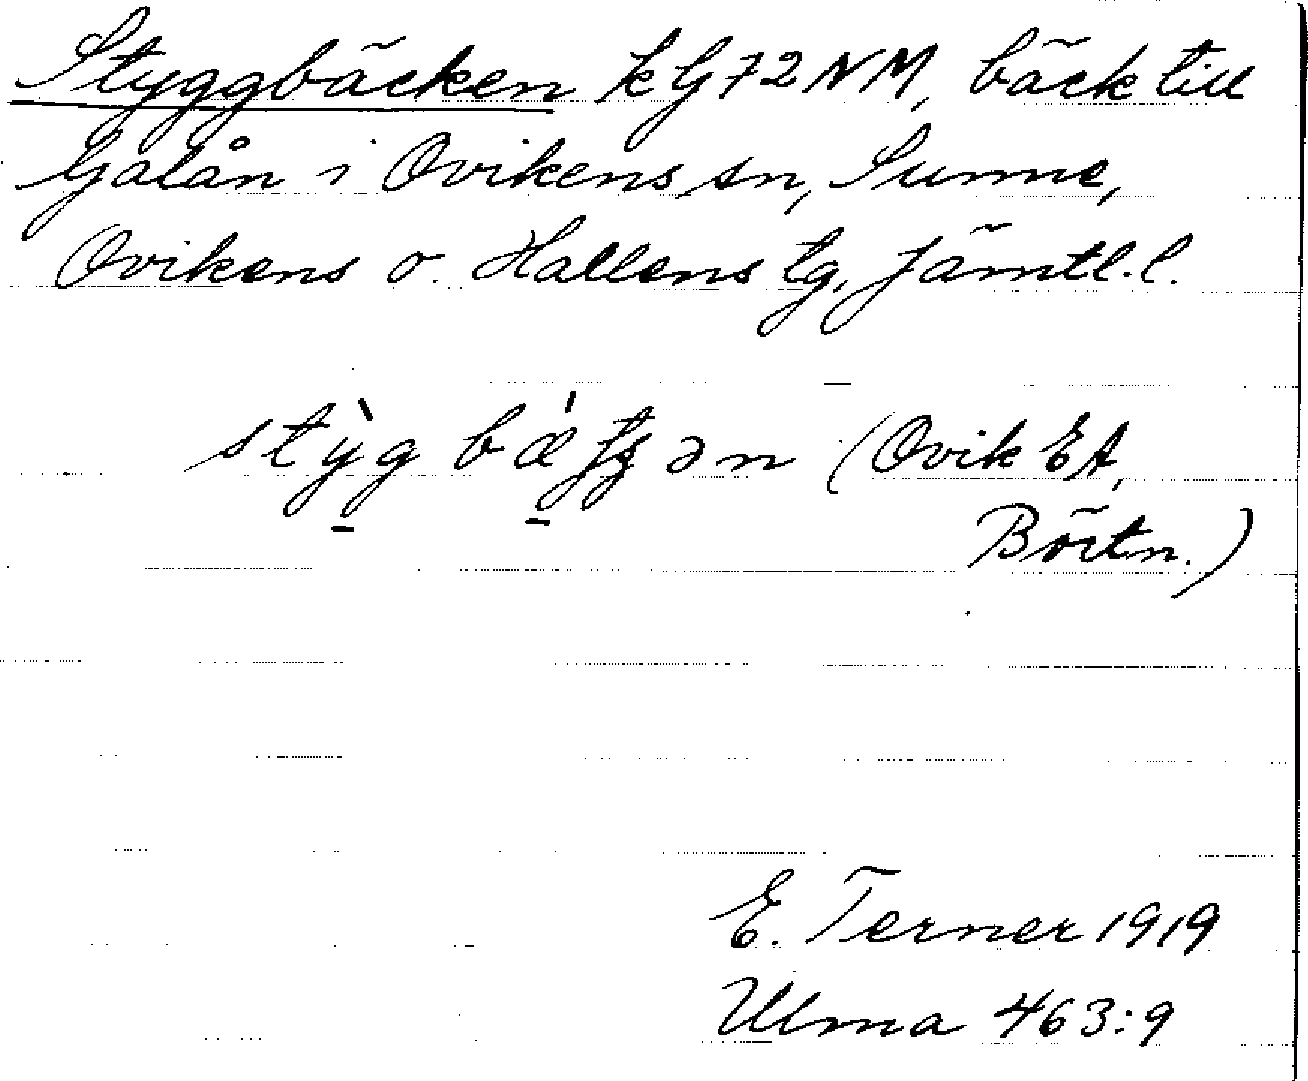 Styggbäcken kG72NM, bäck till
Galån i Ovikens sn, Sunne,
Ovikens o. Hallens tg, Jämtl. l.
stỳg bǽʈʂən (Ovik EA,
Börtn.)
E. Terner 1919
Ulma 463:9